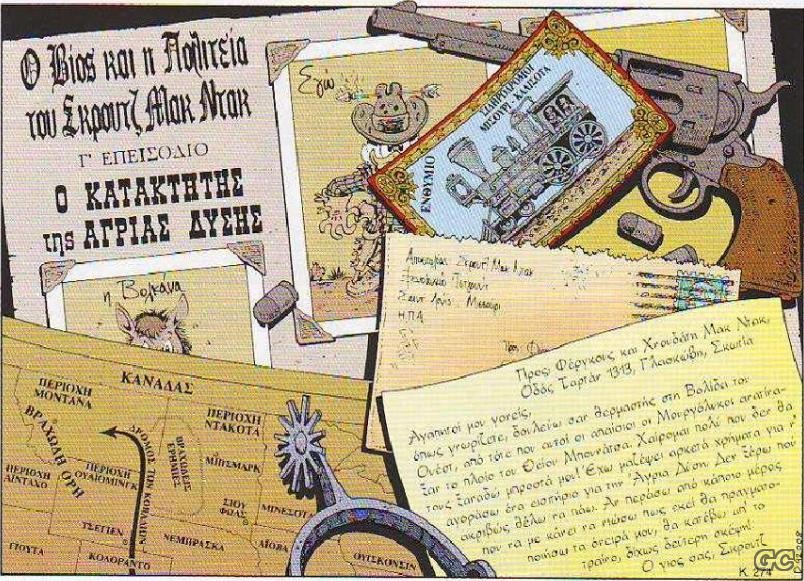 Ο Βίος και η Πολιτεία
του Σκρουτζ Μακ Ντακ
Γ' ΕΠΕΙΣΟΔΙΟ
Ο ΚΑΤΑΚΤΗΤΗΣ
της ΑΓΡΙΑΣ ΔΥΣΗΣ
Εγώ
ΕΝΘΥΜΙΟ
ΣΙΔΗΡΟΔΡΟΜΟΙ
ΜΙΣΟΥΡΙ-
η Βολκάνα
Αποστολέας: Σκρουτζ Μακ Ντακ
Σαιντ Λούις - Μισσούρι
Η.Π.Α.
Προς
Προς Φέργκους και Χνουδάτη Μακ Ντακ,
Οδός Ταρτάν 1313, Γλασκώβη, Σκωτία
Αγαπητοί μου γονείς,
όπως γνωρίζετε, δουλεύω σαν θερμαστής στη Βαλίδα του
Ουέστ, από τότε που αυτοί οι απαίσιοι οι Μουργόλυκοι ανατίνα-
ξαν το πλοίο του Θείου Μπουνάτσα. Χαίρομαι πολύ που δεν θα
τους ξαναδώ μπροστά μου! Έχω μαζέψει αρκετά χρήματα για ν'
αγοράσω ένα εισητήριο για την Άγρια Δύση. Δεν ξέρω πού
ακριβώς θέλω να πάω. Αν περάσω από κάποιο μέρος
που να με κάνει να νιώσω πως εκεί θα πραγματο-
ποιήσω τα όνειρά μου, θα κατέβω απ' το
τραίνο, δίχως δεύτερη σκέψη!
Ο γιος σας, Σκρουτζ
ΚΑΝΑΔΑΣ
ΠΕΡΙΟΧΗ
ΜΟΝΤΑΝΑ
ΒΡΑΧΩΔΗ ΟΡΗ
ΠΕΡΙΟΧΗ
ΝΤΑΚΟΤΑ
ΒΡΑΧΩΔΕΙΣ
ΕΡΗΜΙΕΣ
ΜΠΙΣΜΑΡΚ
ΠΕΡΙΟΧΗ
ΑΪΝΤΑΧΟ
ΠΕΡΙΟΧΗ
ΟΥΑΙΟΜΙΝΓΚ
ΔΡΟΜΟΣ ΤΩΝ ΚΟΠΑΔΙΩΝ
ΣΙΟΥ
ΦΩΛΣ
ΜΙΝΕΣΟΤΑ
ΤΣΕΓΙΕΝ
ΝΕΜΠΡΑΣΚΑ
ΑΪΟΒΑ
ΓΙΟΥΤΑ
ΚΟΛΟΡΑΝΤΟ
ΟΥΙΣΚΟΝΣΙΝ
Κ. 274
GC